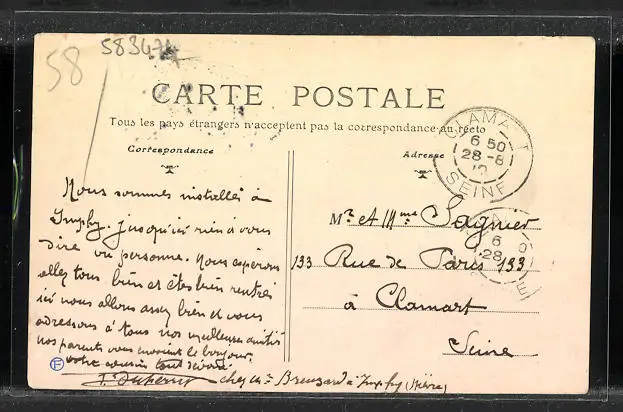 58
583474
CARTE POSTALE
Tous les pays étrangers n'acceptent pas la correspondance au recto
Correspondance
Adresse
CLAMART
6 50
28-8
SEINE
Nous sommes installés à
Imphy. jusqu'ici rien à vous
dire vu personne. Nous espérons
allez tous bien et êtes bien rentrés
ici nous allons assez bien et vous
adressons à tous nos meilleures amitiés
nos parents vous envoient le bonjour.
votre cousin tout dévoué
chez Mr Breuzard à Imphy (Nièvre)
Mr et Mme Sagnier
133 Rue de Paris 133
à Clamart
Seine
6
28